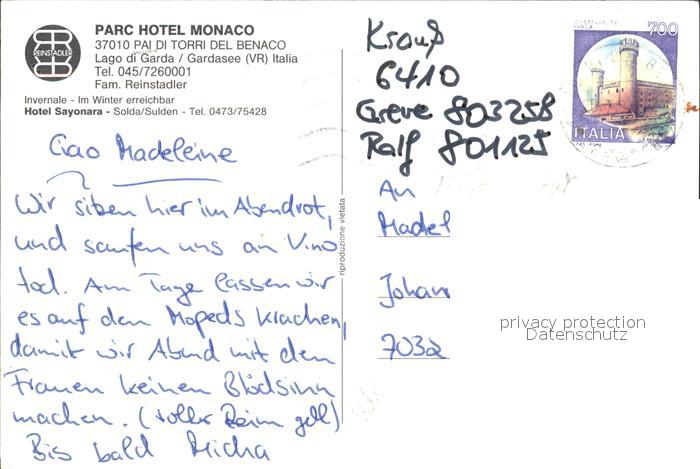 REINSTADLER
PARC HOTEL MONACO
37010 PAI DI TORRI DEL BENACO
Lago di Garda / Gardasee (VR) Italia
Tel. 045/7260001
Fam. Reinstadler
Invernale - Im Winter erreichbar
Hotel Sayonara - Solda/Sulden - Tel. 0473/75428
Ciao Madeleine
Wir sitzen hier im Abendrot,
und saufen uns an Vino
tod. Am Tage lassen wir
es auf den Mopeds krachen,
damit wir Abend mit den
Frauen keinen Blödsinn
machen. (toller Reim gell)
Bis bald Micha
riproduzione vietata
Krauß
6410
Greve 803258
Ralf 801125
An
Madel
Johan
7032
CASTELLO DI
IVREA
700
ITALIA
privacy protection
Datenschutz